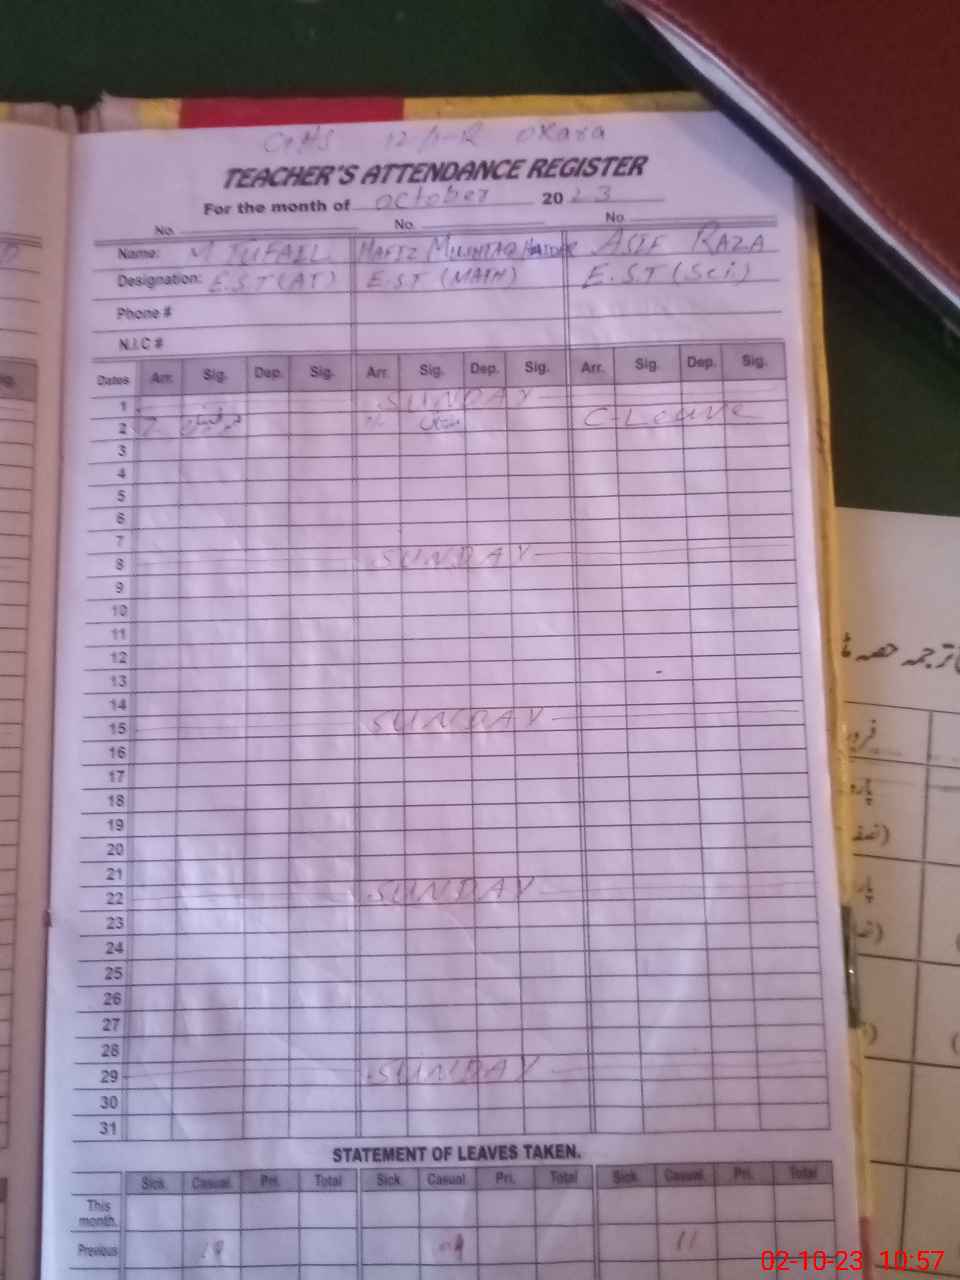 OKara
TEACHER'S ATTENDANCE REGISTER
For the month of October 2023
No. No. No.
Name: M TUFAIL HAFIZ MUSHTAQ HAIDER ASIF RAZA
Designation: E.S.T (AT) E.ST (MATH) E.S.T (Sci.)
Phone #
N.I.C #
Dates Arr. Sig. Dep. Sig. Arr. Sig. Dep. Sig. Arr. Sig. Dep. Sig.
1 SUNDAY
2 C-Leave
3
4
5
6
7
8 SUNDAY
9
10
11
12
13
14
15 SUNDAY
16
17
18
19
20
21
22 SUNDAY
23
24
25
26
27
28
29 SUNDAY
30
31
STATEMENT OF LEAVES TAKEN.
Sick Casual Pri. Total Sick Casual Pri. Total Sick Casual Pri. Total
This month.
Previous 11
ترجمہ حصہ
02-10-23 10:57